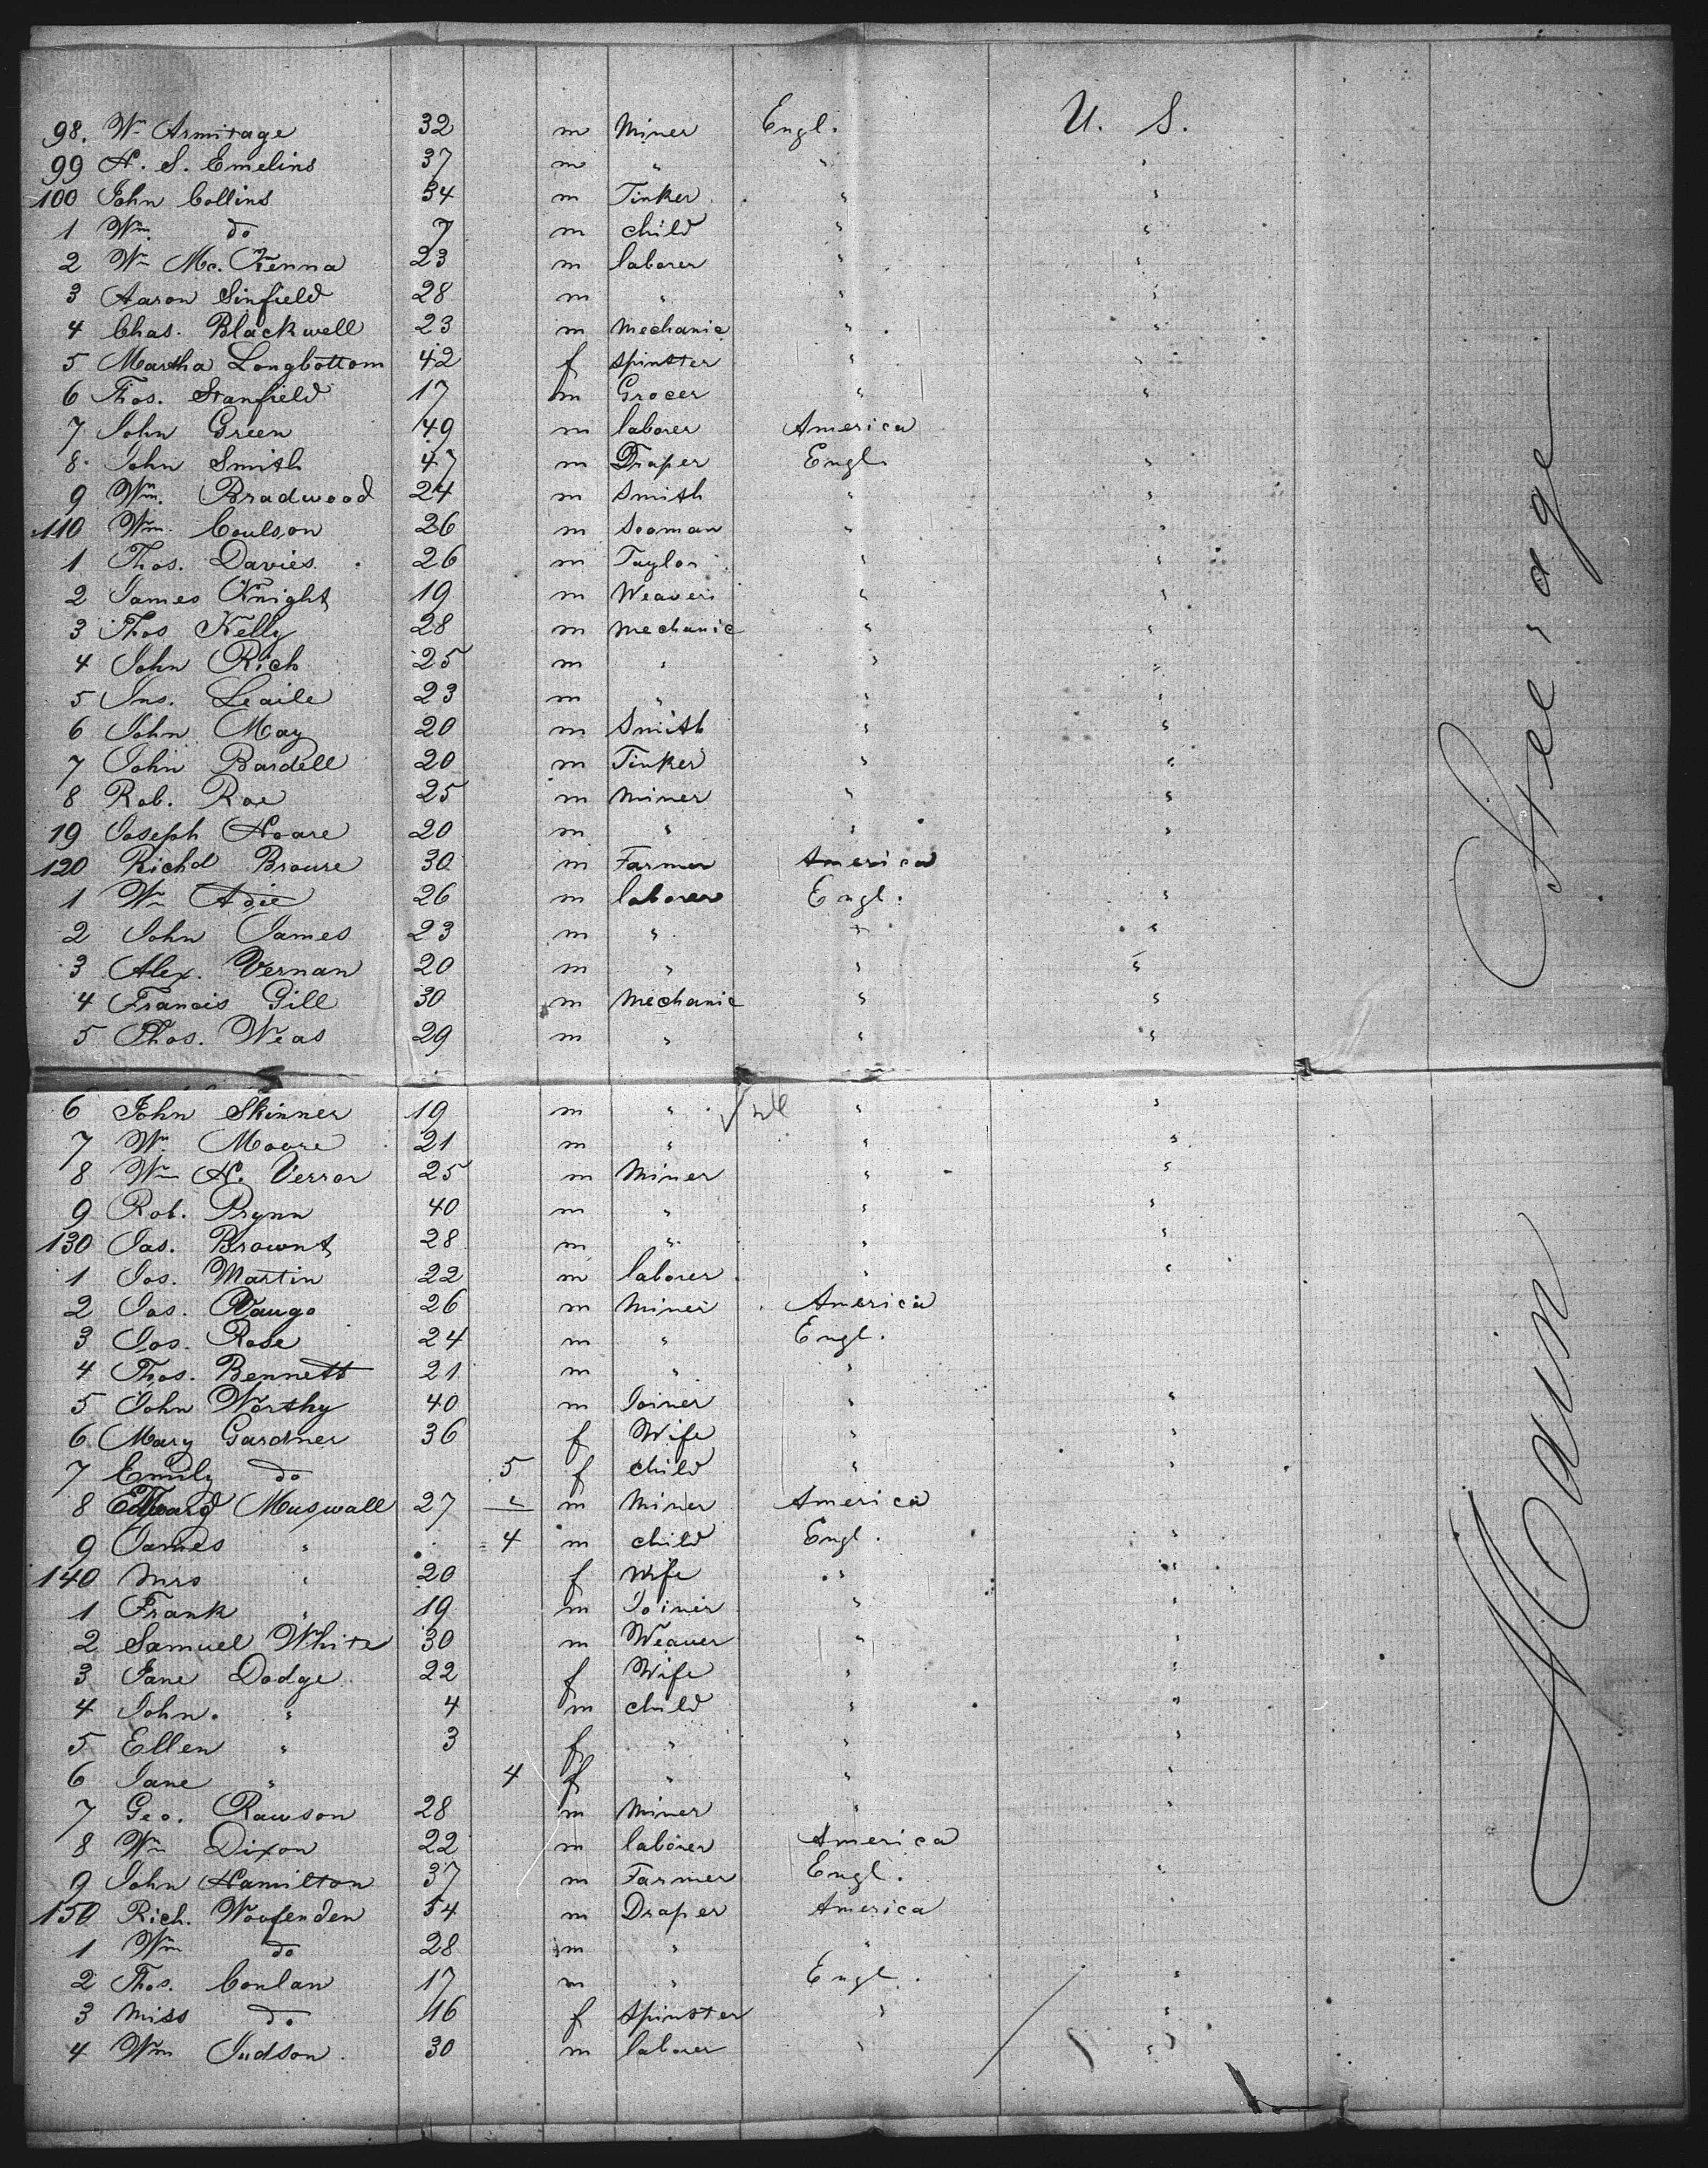 98. Wm Armitage 32 m Miner Engl. U. S.
99 H. S. Emelins 37 m " " "
100 John Collins 34 m Tinker " "
1 Wm. do 7 m child " "
2 Wm Mc. Kenna 23 m laborer " "
3 Aaron Sinfield 28 m " " "
4 Chas. Blackwell 23 m Mechanic " "
5 Martha Longbottom 42 f spinster " "
6 Thos. Stanfield 17 m Grocer " "
7 John Green 49 m laborer America
8 John Smith 47 m Draper Engl. "
9 Wm. Bradwood 24 m Smith " "
110 Wm. Coulson 26 m Seaman " "
1 Thos. Davies 26 m Taylor " "
2 James Knight 19 m Weaver " "
3 Thos Kelly 28 m mechanic " "
4 John Rich 25 m " " "
5 Jns. Leaile 23 m " " "
6 John May 20 m Smith " "
7 John Bardell 20 m Tinker " "
8 Rob. Roe 25 m Miner " "
19 Joseph Hoare 20 m " " "
120 Richd Broure 30 m Farmer America
1 Wm Adie 26 m laborer Engl. "
2 John James 23 m " " "
3 Alex. Vernan 20 m " " "
4 Francis Gill 30 m Mechanic " "
5 Thos. Weas 29 m " " "
Steerage
6 John Skinner 19 m " " "
7 Wm. Moore 21 m " " "
8 Wm H. Verror 25 m Miner " "
9 Rob. Prynn 40 m " " "
130 Jas. Brownt 28 m " " "
1 Jos. Martin 22 m laborer " "
2 Jas. Vaugo 26 m Miner America
3 Jos. Rose 24 m " Engl.
4 Thos. Bennett 21 m " "
5 John Worthy 40 m Joiner " "
6 Mary Gardner 36 f Wife " "
7 Emily do 5 f child " "
8 Edward Muswall 27 " m Miner America
9 James " 4 m child Engl. "
140 Mrs " 20 f wife " "
1 Frank " 19 m Joiner " "
2 Samuel White 30 m Weaver " "
3 Jane Dodge 22 f Wife " "
4 John. " 4 m child " "
5 Ellen " 3 f " " "
6 Jane " 4 f " " "
7 Geo. Rawson 28 m Miner " "
8 Wm Dixon 22 m laborer America
9 John Hamilton 37 m Farmer Engl. "
150 Rich. Woofenden 54 m Draper America "
1 Wm do 28 m " "
2 Thos. Conlan 17 m " Engl. "
3 Miss do 16 f spinster " "
4 Wm Judson 30 m laborer " "